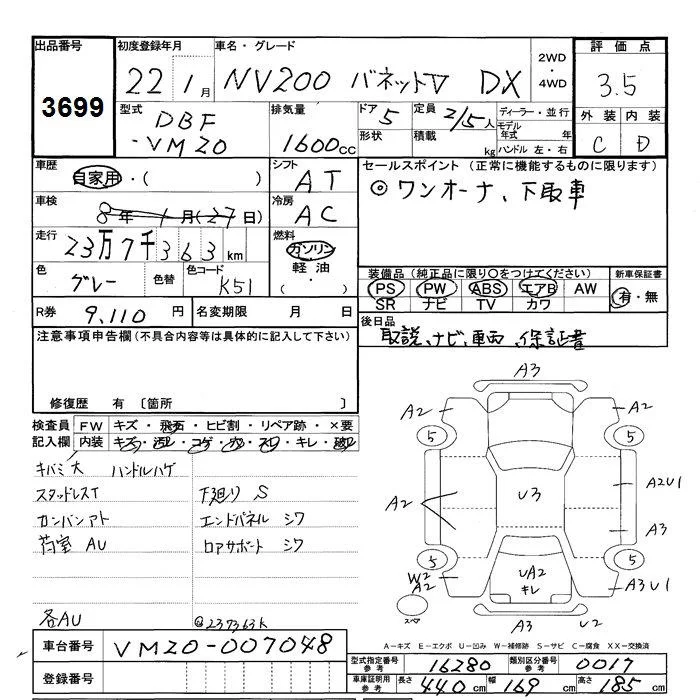 出品番号
3699
初度登録年月
22 1月
車名・グレード
NV200 バネットV DX
2WD
・
4WD
評価点
3.5
外装 内装
C D
型式
DBF
-VM20
排気量
1600cc
ドア 5
形状
定員 2/5人
積載 kg
ディーラー・並行
モデル年式 年
ハンドル 左・右
車歴
自家用・( )
シフト
AT
セールスポイント (正常に機能するものに限ります)
◎ワンオーナ、下取車
車検
8年 1月(27日)
冷房
AC
走行
23万7千363km
燃料
ガソリン
軽油・
( )
色
グレー
色替
色コード
K51
装備品(純正品に限り○をつけてください)
新車保証書
PS PW ABS エアB AW
SR ナビ TV カワ
有・無
R券 9,110円
名変期限 月 日
後日品
取説、ナビ、車両、保証書
注意事項申告欄(不具合内容等は具体的に記入して下さい)
修復歴 有 〔箇所 〕
検査員記入欄
FW キズ・飛石・ヒビ割・リペア跡・×要
内装 キズ・汚レ・コゲ・穴・スレ・キレ・
キバミ大 ハンドルハゲ
スタッドレスT 下廻りS
カンバンアト エンドパネルシワ
荷室AU ロアサポートシワ
各AU @237363k
A3
A2 A2
5 5
A2 U3 A2U1
A3
5 5
W2
A2 UA2
キレ A3U1
スペア
A3 U2
A=キズ E=エクボ U=凹み W=補修跡 S=サビ C=腐食 XX=交換済
車台番号
VM20-007048
登録番号
型式指定番号参考 16280
類別区分番号参考 0017
車庫証明用参考 長さ 440cm 幅 169cm 高さ 185cm